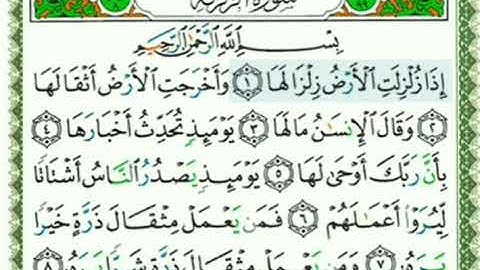 سُورَةُ الزَّلْزَلَةِ
بِسْمِ ٱللَّهِ ٱلرَّحْمَٰنِ ٱلرَّحِيمِ
إِذَا زُلْزِلَتِ ٱلْأَرْضُ زِلْزَالَهَا ١ وَأَخْرَجَتِ ٱلْأَرْضُ أَثْقَالَهَا
٢ وَقَالَ ٱلْإِنسَٰنُ مَا لَهَا ٣ يَوْمَئِذٍ تُحَدِّثُ أَخْبَارَهَا ٤
بِأَنَّ رَبَّكَ أَوْحَىٰ لَهَا ٥ يَوْمَئِذٍ يَصْدُرُ ٱلنَّاسُ أَشْتَاتًا
لِّيُرَوْا۟ أَعْمَٰلَهُمْ ٦ فَمَن يَعْمَلْ مِثْقَالَ ذَرَّةٍ خَيْرًا
يَرَهُۥ ٧ وَمَن يَعْمَلْ مِثْقَالَ ذَرَّةٍ شَرًّا يَرَهُۥ ٨